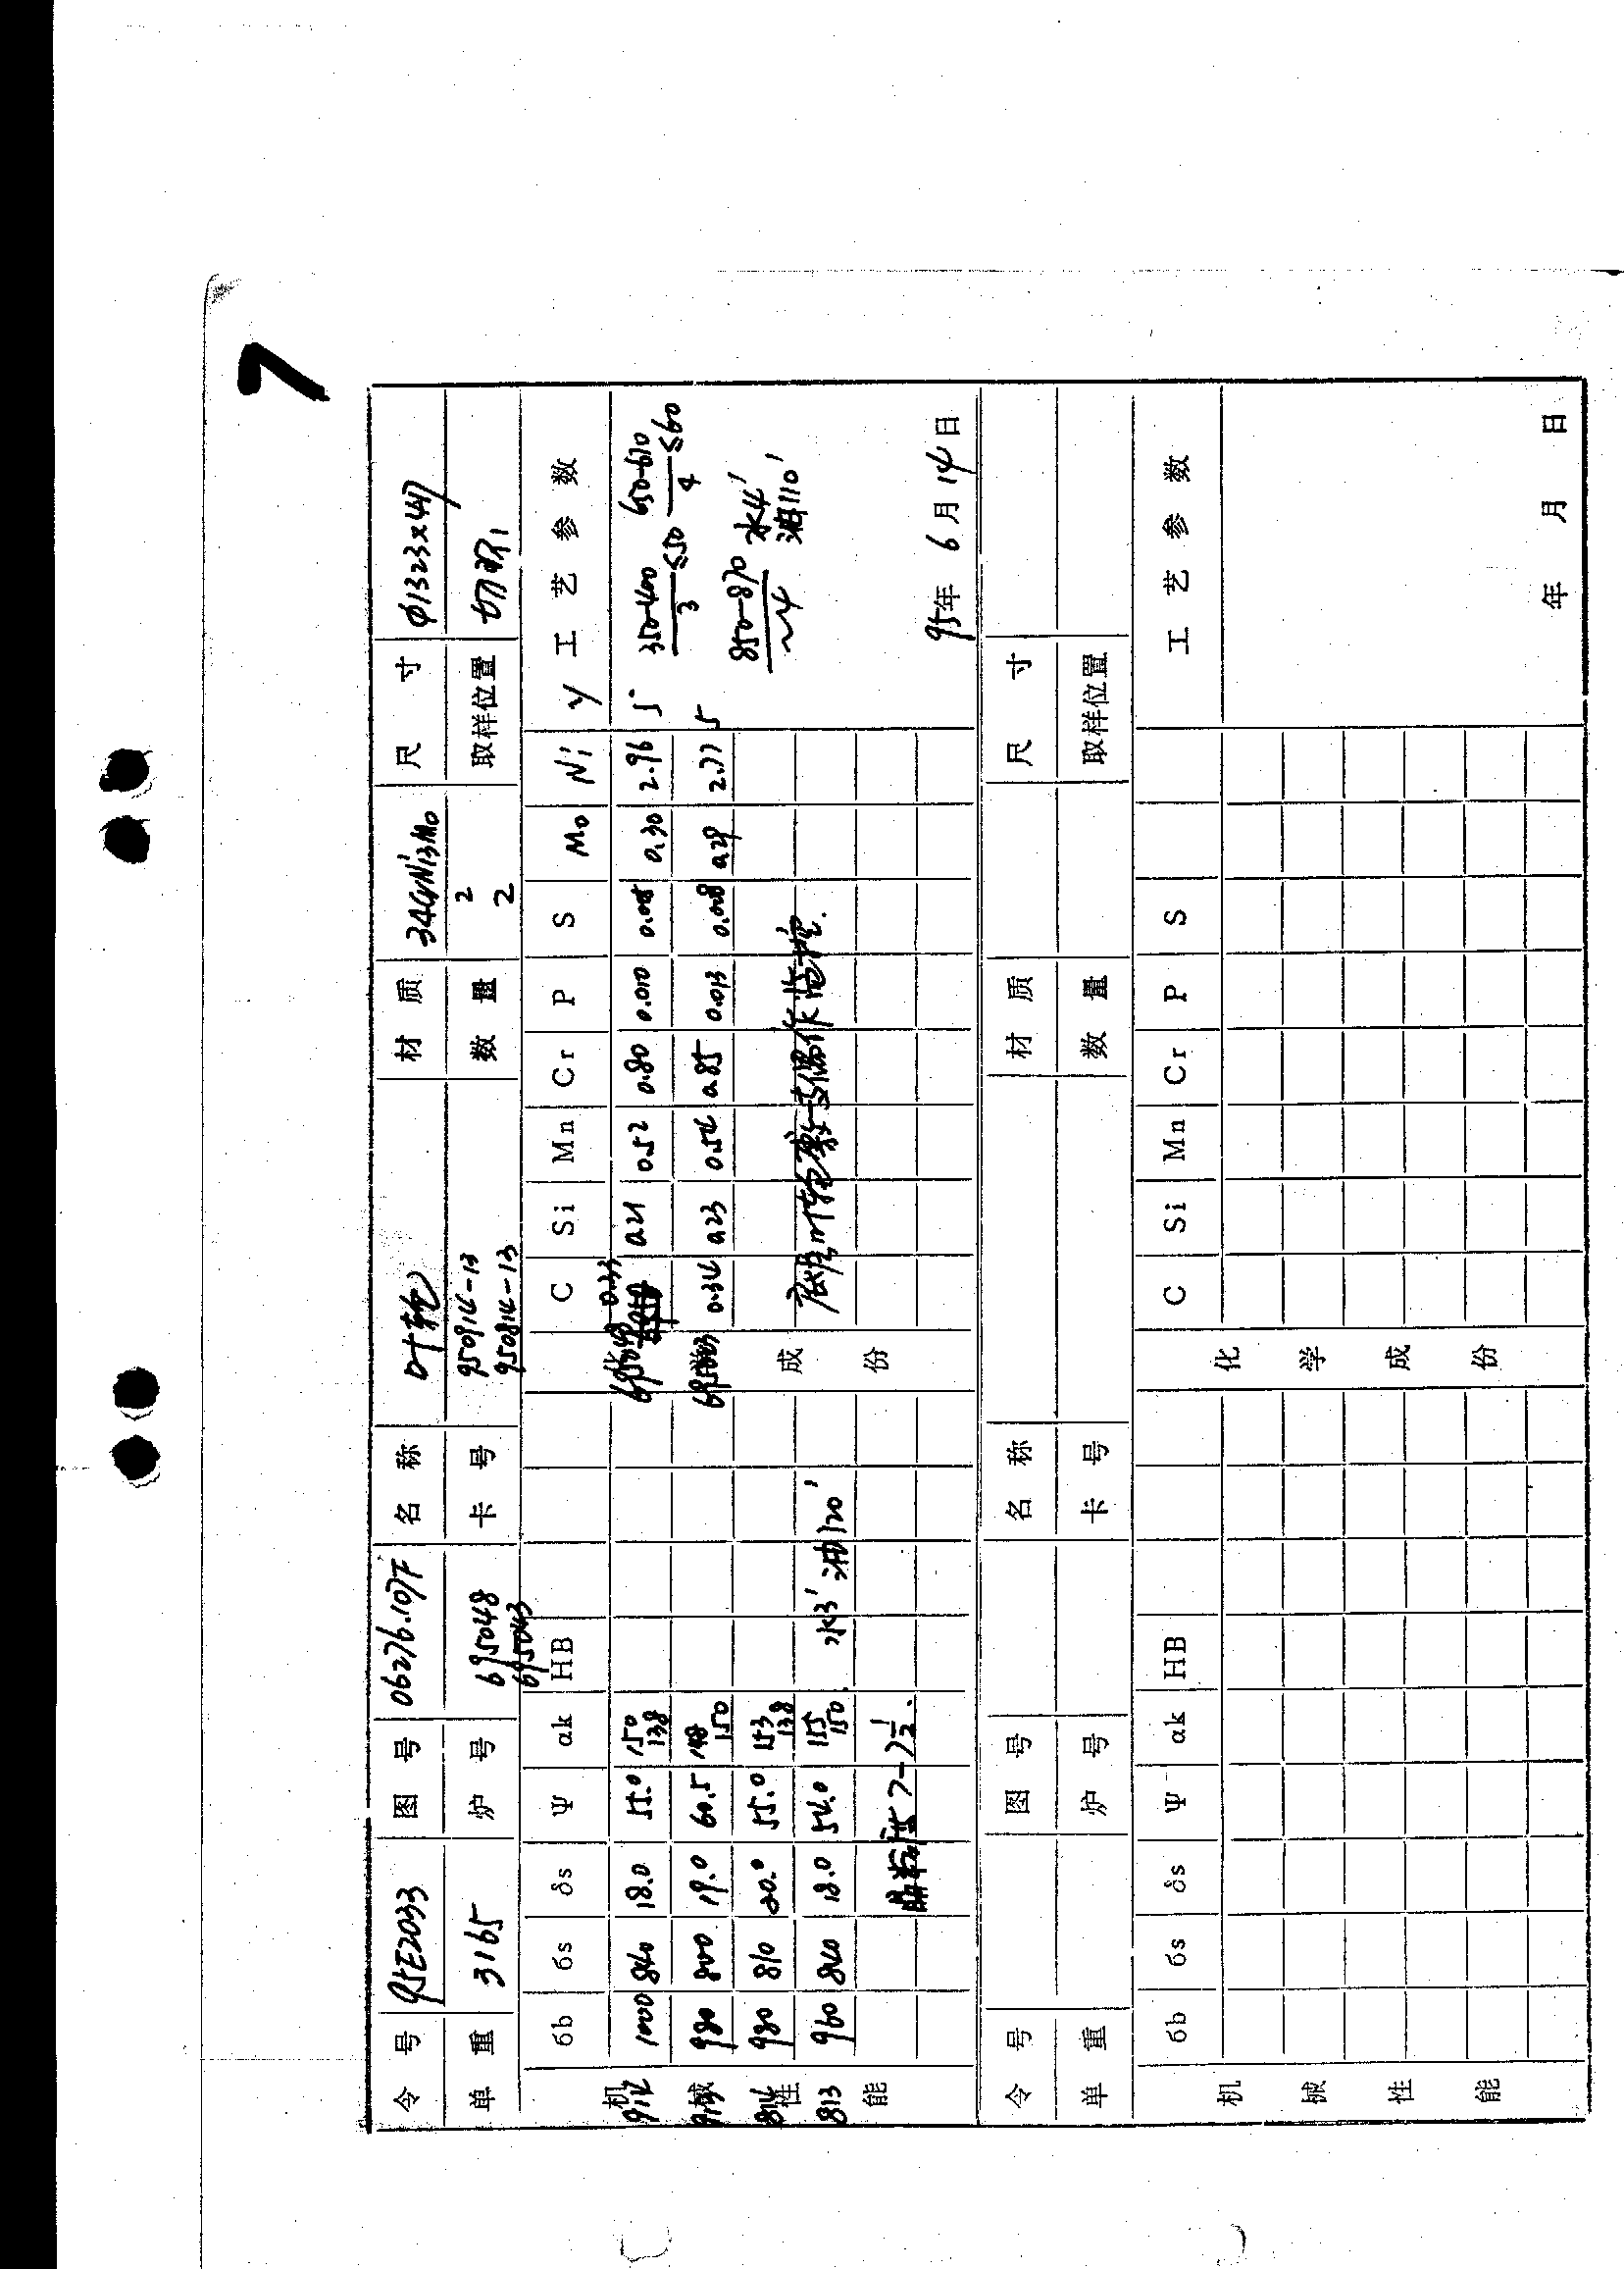 7
令号 95E2033 图号 06276.107F 名称 叶轮 材质 34CrNi3Mo 尺寸 φ1323×447
单重 3165 炉号 695048 卡号 950914-13 数量 2 取样位置 切取1
695043 950814-13 2
бb бs δs Ψ αk HB C Si Mn Cr P S Mo Ni V 工艺参数
机械性能
化学成份
914 1000 840 18.0 55.0 150 138
913 980 800 19.0 60.5 148 150
814 980 810 20.0 55.0 153 138
813 960 840 18.0 54.0 155 150
水3′ 油120′
晶粒度 7-7½.
695048 0.33 0.21 0.52 0.80 0.010 0.005 0.30 2.96 5
695043 0.34 0.23 0.54 0.85 0.013 0.008 0.29 2.77 5
350-400 550 650-670 560
3 4
850-870 水4′
~4 油110′
95年6月14日
令号 图号 名称 材质 尺寸
单重 炉号 卡号 数量 取样位置
бb бs δs Ψ αk HB C Si Mn Cr P S 工艺参数
机械性能
化学成份
年 月 日